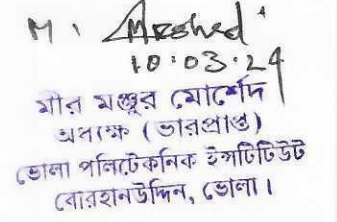 M. Morshed
10.03.24
মীর মঞ্জুর মোর্শেদ
অধ্যক্ষ (ভারপ্রাপ্ত)
ভোলা পলিটেকনিক ইন্সটিটিউট
বোরহানউদ্দিন, ভোলা।